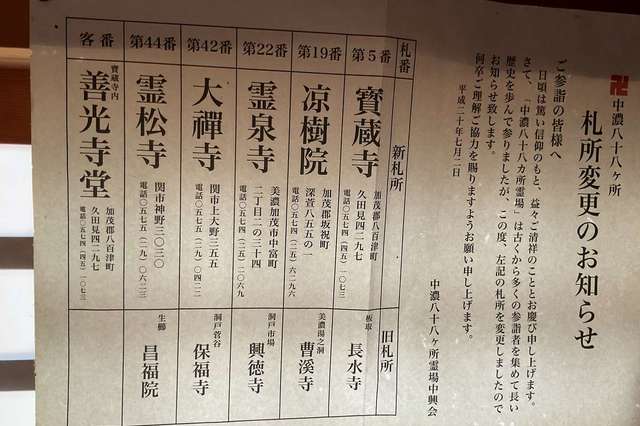 卍 中濃八十八ヶ所
札所変更のお知らせ
ご参詣の皆様へ
日頃は篤い信仰のもと、益々ご清祥のこととお慶び申し上げます。
さて、「中濃八十八カ所霊場」は古くから多くの参詣者を集めて長い
歴史を歩んで参りましたが、この度、左記の札所を変更しましたので
お知らせ致します。
何卒ご理解ご協力を賜りますようお願い申し上げます。
平成二十年七月二日
中濃八十八ヶ所霊場中興会
札番
新札所
旧札所
第5番
寶蔵寺
加茂郡八百津町
久田見四二九七
電話〇五七四(四五)一〇七三
板取
長水寺
第19番
凉樹院
加茂郡坂祝町
深萱八五五の一
電話〇五七四(二五)六一九六
美濃湯之洞
曹溪寺
第22番
霊泉寺
美濃加茂市中富町
二丁目二の三十四
電話〇五七四(二五)二〇六九
洞戸市場
興徳寺
第42番
大禪寺
関市上大野三五五
電話〇五七五(二九)〇四二二
洞戸菅谷
保福寺
第44番
霊松寺
関市神野三〇三〇
電話〇五七五(二九)〇六二三
生櫛
昌福院
客番
寶蔵寺内
善光寺堂
加茂郡八百津町
久田見四二九七
電話〇五七四(四五)一〇七三